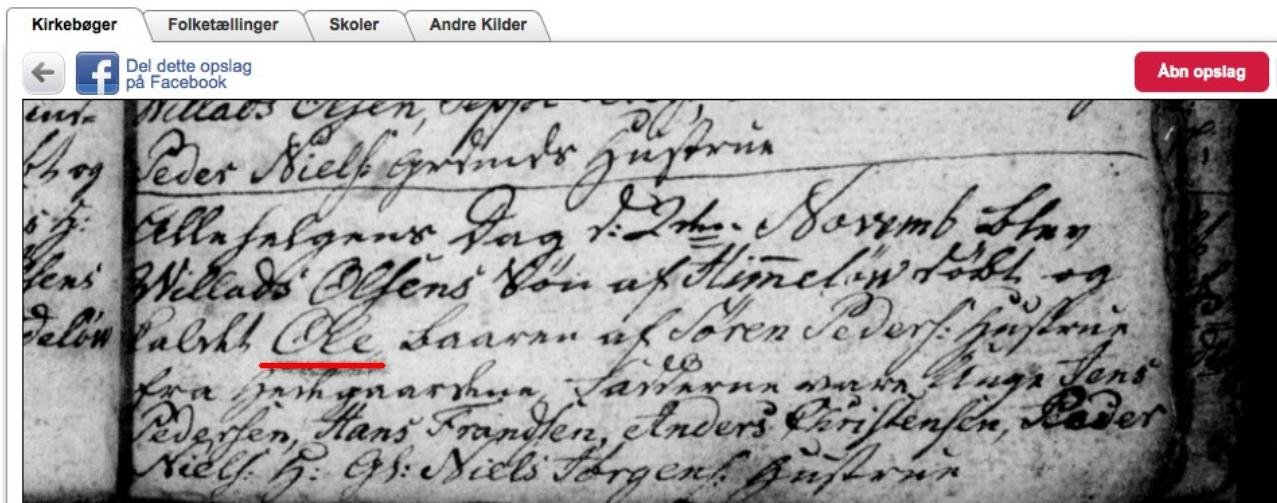 Kirkebøger
Folketællinger
Skoler
Andre Kilder
Del dette opslag
på Facebook
Åbn opslag
Willads Olsen,
og Peder Niels: Hustrue
Allehelgens Dag d: 2den Novemb blev
Willads Olsens Søn af Himmelöw döbt og
kaldet Ole baaren af Sören Peders: Hustrue
fra Hedegaardene, Fadderne vare Unge Jens
Pedersen, Hans Frandsen, Anders Christensen, Peder
Niels: H: Gl: Niels Jørgens: Hustrue